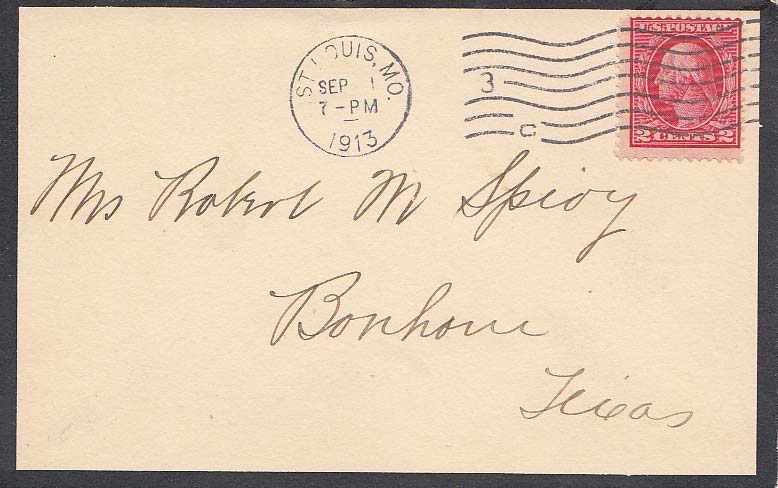 ST. LOUIS, MO.
SEP 1
7-PM
1913
3
C
U.S. POSTAGE
2 CENTS 2
Mrs Robert M Spivy
Bonham
Texas